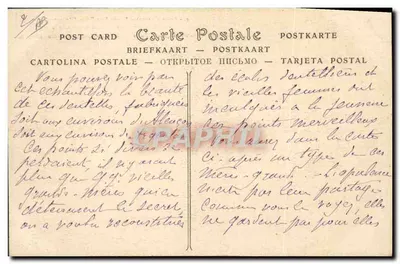 POST CARD Carte Postale POSTKARTE
BRIEFKAART — POSTKAART
CARTOLINA POSTALE — ОТКРЫТОЕ ПИСЬМО — TARJETA POSTAL
Vous pouvez voir par
cet echantillon la beauté
de ces dentelles fabriquées
soit aux environs d'Alençon
soit aux environs de
Ces points si divers se
perdaient il n'y avait
plus que qqs vieille
grands-mères qui en
détenaient le secret
on a voulu reconstituer
des écoles dentellières et
les vieilles femmes ont
à la jeunesse
ces points merveilleux
avez dans la carte
ci-après un type de ces
mères-grands. L'opulence
n'est pas leur partage
comme vous le voyez, elles
ne gardent pas pour elles